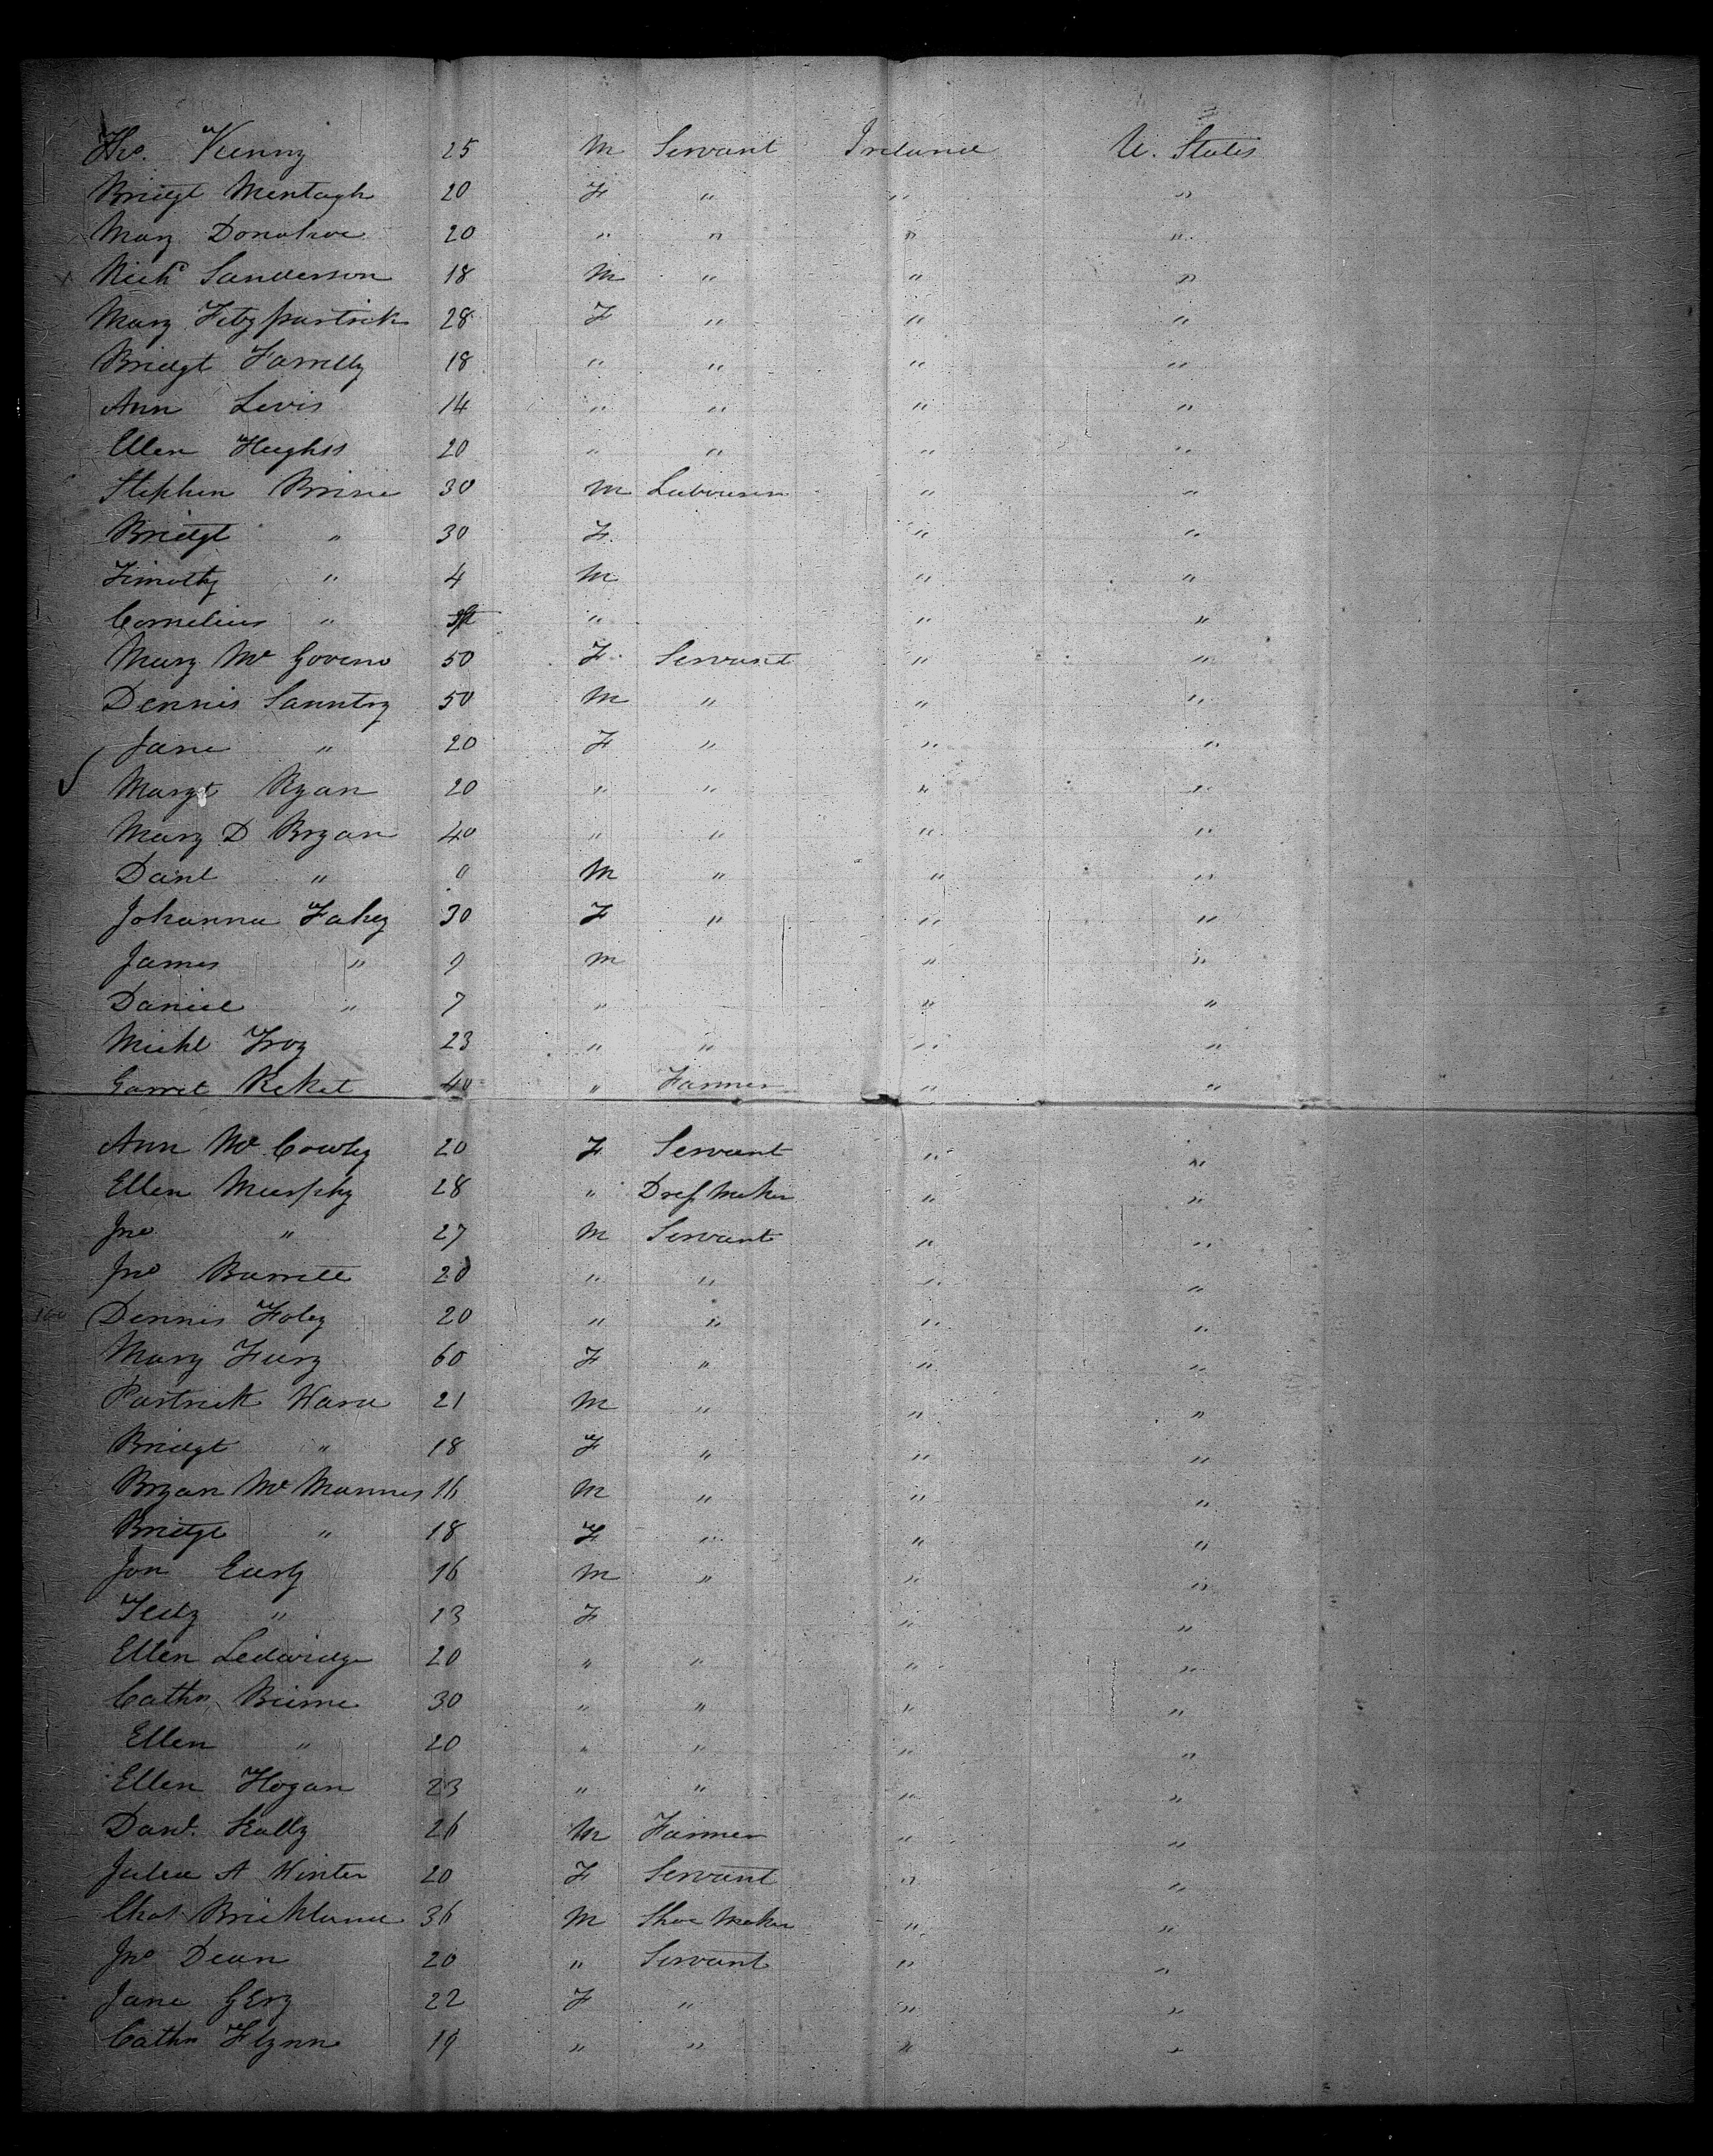 Tho. Kenny 25 M Servant Ireland U. States
Bridgt Mentagh 20 F " " "
Mary Donohoe 20 " " " "
Richd Sanderson 18 M " " "
Mary Fitzpartrick 28 F " " "
Bridgt Farrelly 18 " " " "
Ann Levis 14 " " " "
Ellen Hughs 20 " " " "
Stephen Brine 30 M Labourer " "
Bridgt " 30 F " "
Timothy " 4 M " "
Cornelius " " " "
Mary Mc Govern 50 F Servant " "
Dennis Sanntry 50 M " " "
Jane " 20 F " " "
Margt Ryan 20 " " " "
Mary D Bryan 40 " " " "
Danl " M " " "
Johanna Fahey 30 F " " "
James " 9 M " "
Daniel " 7 " " "
Michl Troy 23 " " " "
Garret Reket 40 " Farmer " "
Ann Mc Cowley 20 F Servant " "
Ellen Murphy 28 " Dress Maker " "
Jno " 27 M Servant " "
Jno Barrett 20 " " " "
160 Dennis Foley 20 " " " "
Mary Fury 60 F " " "
Partrick Ward 21 M " " "
Bridgt " 18 F " " "
Bryan Mc Mannus 16 M " " "
Bridgt " 18 F " " "
Jon Early 16 M " " "
" 13 F " "
Ellen Ledwidge 20 " " " "
Cathn Beirne 30 " " " "
Ellen " 20 " " " "
Ellen Hogan 23 " " " "
Danl. Kally 26 M Farmer " "
Julia A Winter 20 F Servant " "
Chas Brickland 36 M Shoe Maker " "
Jno Dean 20 " Servant " "
Jane Gery 22 F " " "
Cathn Flynn 19 " " " "